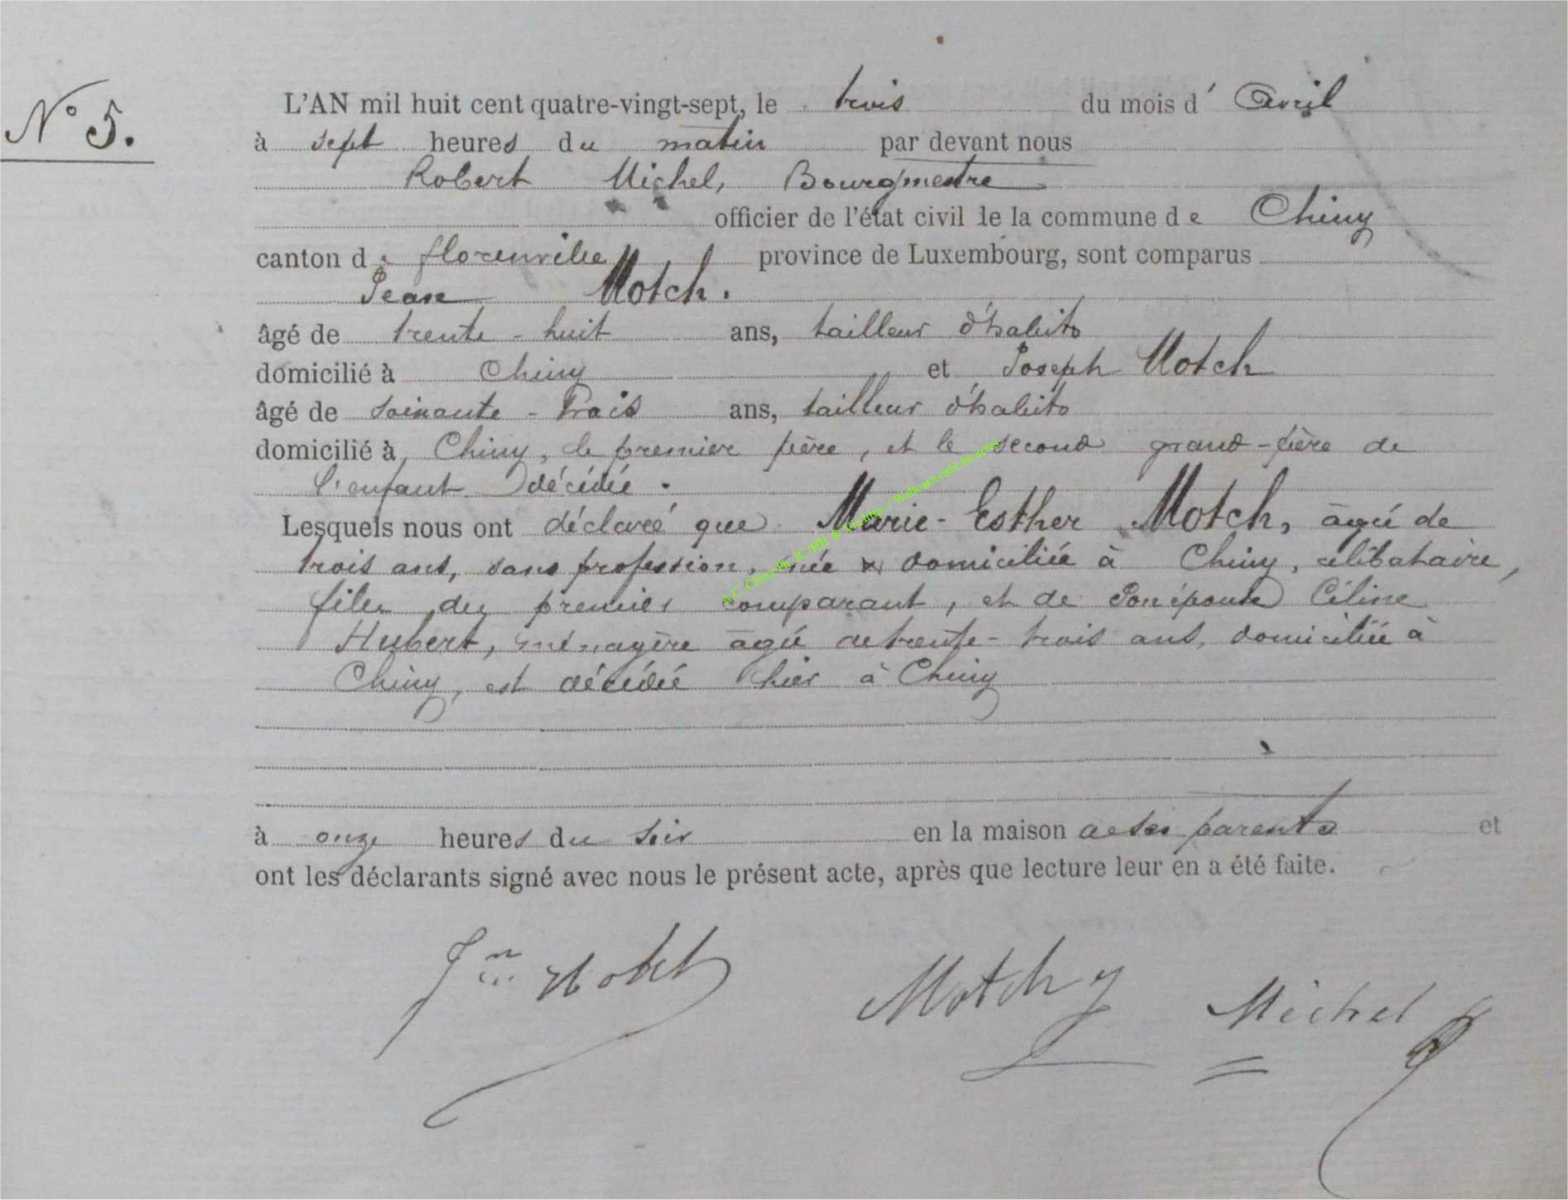 N° 5.
L'AN mil huit cent quatre-vingt-sept, le trois du mois d' Avril
à sept heures du matin par devant nous
Robert Michel, Bourgmestre
officier de l'état civil de la commune de Chiny
canton de florenville province de Luxembourg, sont comparus
Jean Motch.
âgé de trente-huit ans, tailleur d'habits
domicilié à Chiny et Joseph Motch
âgé de soixante-trois ans, tailleur d'habits
domicilié à Chiny, le premier père, et le second grand-père de
l'enfant décédée.
Lesquels nous ont déclaré que Marie-Esther Motch, âgée de
trois ans, sans profession, née & domiciliée à Chiny, célibataire,
fille du premier comparant, et de son épouse Céline
Hubert, ménagère âgée de trente-trois ans, domiciliée à
Chiny, est décédée hier à Chiny
à onze heures du soir en la maison de ses parents et
ont les déclarants signé avec nous le présent acte, après que lecture leur en a été faite.
Jn Motch
Motch J
Michel